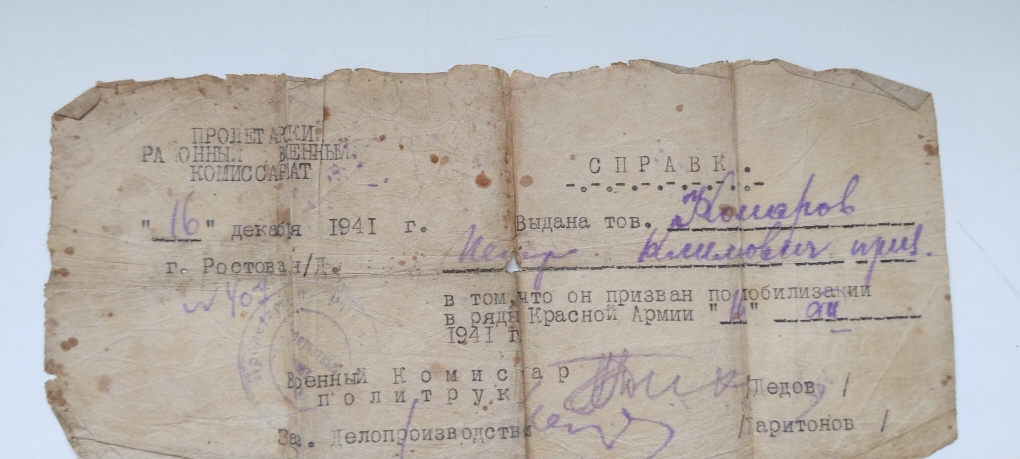 ПРОЛЕТАРСКИЙ
РАЙОННЫЙ ВОЕННЫЙ
КОМИССАРИАТ
"16" декабря 1941 г.
г. Ростов н/Д.
№ 407
СПРАВКА.
Выдана тов. Комаров
Петр Климович
в том, что он призван по мобилизации
в ряды Красной Армии "16"
1941 г
Военный Комиссар
политрук /Дедов /
За. Делопроизводства /Харитонов /